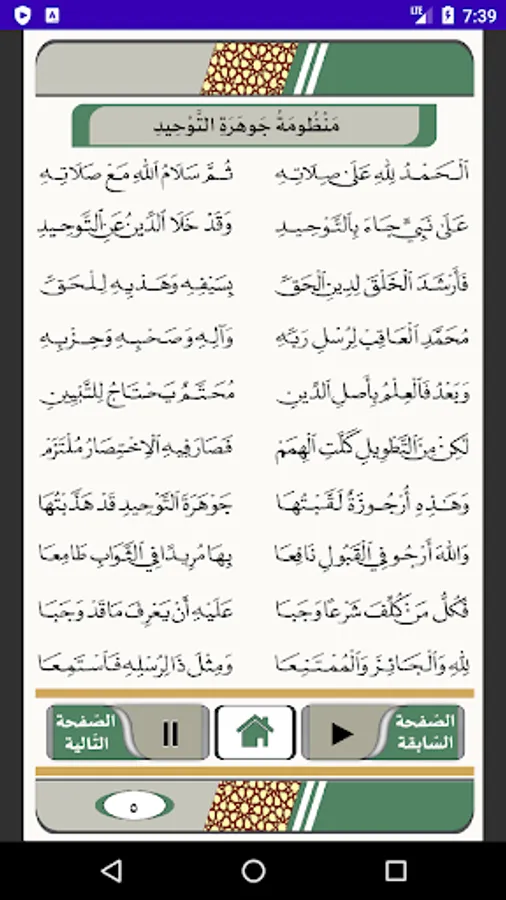 7:39
LTE
A
مَنْظُومَةُ جَوْهَرَةِ التَّوْحِيدِ
اَلْحَمْدُ لِلّٰهِ عَلَى صِلَاتِهِ ثُمَّ سَلَامُ اللهِ مَعْ صَلَاتِهِ
عَلَى نَبِيٍّ جَاءَ بِالتَّوْحِيدِ وَقَدْ خَلَا الدِّينُ عَنِ التَّوْحِيدِ
فَأَرْشَدَ الْخَلْقَ لِدِينِ الْحَقِّ بِسَيْفِهِ وَهَدْيِهِ لِلْحَقِّ
مُحَمَّدِ الْعَاقِبْ لِرُسْلِ رَبِّهِ وَآلِهِ وَصَحْبِهِ وَحِزْبِهِ
وَبَعْدُ فَالْعِلْمُ بِأَصْلِ الدِّينِ مُحَتَّمٌ يَحْتَاجُ لِلتَّبْيِينِ
لَكِنْ مِنَ التَّطْوِيلِ كَلَّتِ الْهِمَمْ فَصَارَ فِيهِ الْاِخْتِصَارُ مُلْتَزَمْ
وَهَذِهِ أُرْجُوزَةٌ لَقَّبْتُهَا جَوْهَرَةَ التَّوْحِيدِ قَدْ هَذَّبْتُهَا
وَاللهَ أَرْجُو فِي الْقَبُولِ نَافِعَا بِهَا مُرِيدًا فِي الثَّوَابِ طَامِعَا
فَكُلُّ مَنْ كُلِّفَ شَرْعًا وَجَبَا عَلَيْهِ أَنْ يَعْرِفَ مَا قَدْ وَجَبَا
لِلّٰهِ وَالْجَائِزَ وَالْمُمْتَنِعَا وَمِثْلَ ذَا لِرُسْلِهِ فَاسْتَمِعَا
الصّفحة السّابقة
الصّفحة التّالية
٥